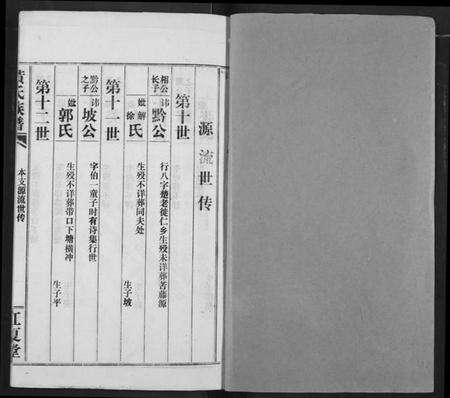 源流世传
第十世
相公长子
讳黔公
行八字楚老徙仁乡生殁未详葬苦藤源
妣 解 徐 氏
生殁不详葬同夫处
生子坡
第十一世
黔公之子
讳坡公
字伯一童子时有诗集行世
妣郭氏
生殁不详葬带口下塘横冲
生子平
第十二世
黄氏族谱
本支源流世传
江夏堂